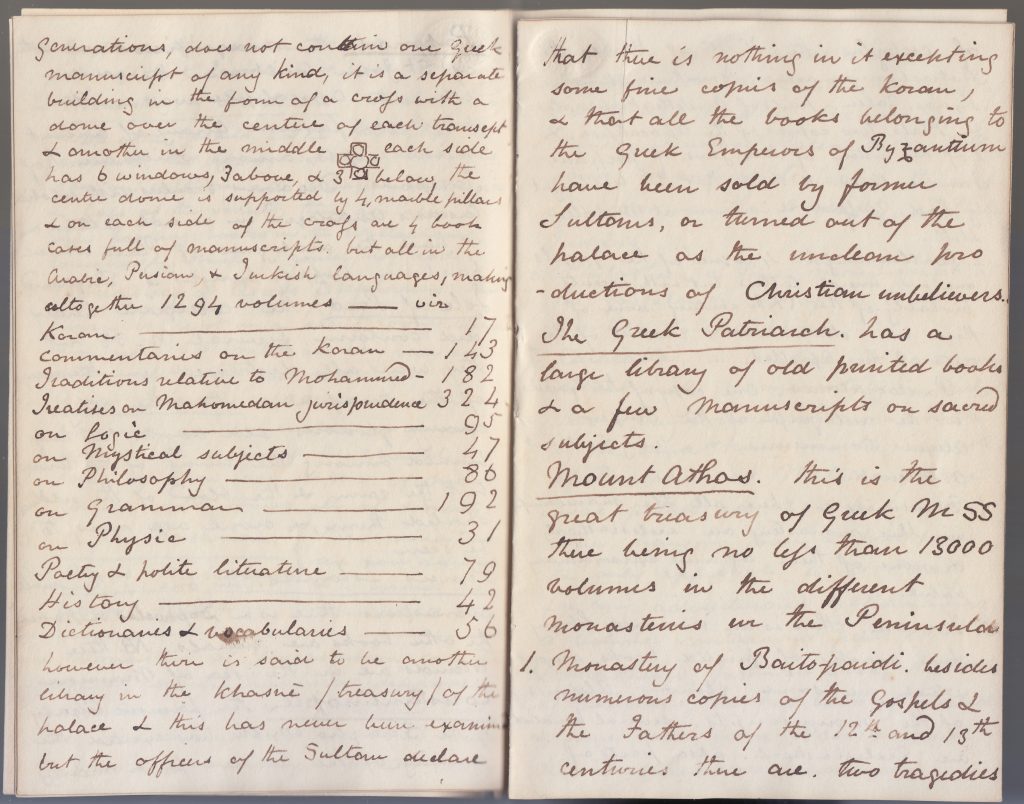 Generations, does not contain one Greek
manuscript of any kind, it is a separate
building in the form of a cross with a
dome over the centre of each transept
& another in the middle each side
has 6 windows, 3 above, & 3 below, the
centre dome is supported by 4, marble pillars
& on each side of the cross are 4 book
cases full of manuscripts. but all in the
Arabic, Persian, & Turkish languages, making
altogether 1294 volumes — viz
Koran — 17
Commentaries on the Koran — 143
Traditions relative to Mohammed - 182
Treatises on Mahomedan jurisprudence 324
on Logic — 95
on Mystical subjects — 47
on Philosophy — 86
on Grammar — 192
on Physic — 31
Poetry & polite literature — 79
History — 42
Dictionaries & vocabularies — 56
however there is said to be another
library in the Khasné /treasury/ of the
palace & this has never been examin
but the officers of the Sultan declare
that there is nothing in it excepting
some fine copies of the Koran,
& that all the books belonging to
the Greek Emperors of Byzantium
have been sold by former
Sultans, or turned out of the
palace as the unclean pro
-ductions of Christian unbelievers.
The Greek Patriarch. has a
large library of old printed books
& a few manuscripts on sacred
subjects.
Mount Athos. this is the
great treasury of Greek MSS
there being no less than 13000
volumes in the different
monasteries in the Peninsula
1. Monastery of Baitopaidi. besides
numerous copies of the Gospels &
the Fathers of the 12th and 13th
centuries there are. two tragedies